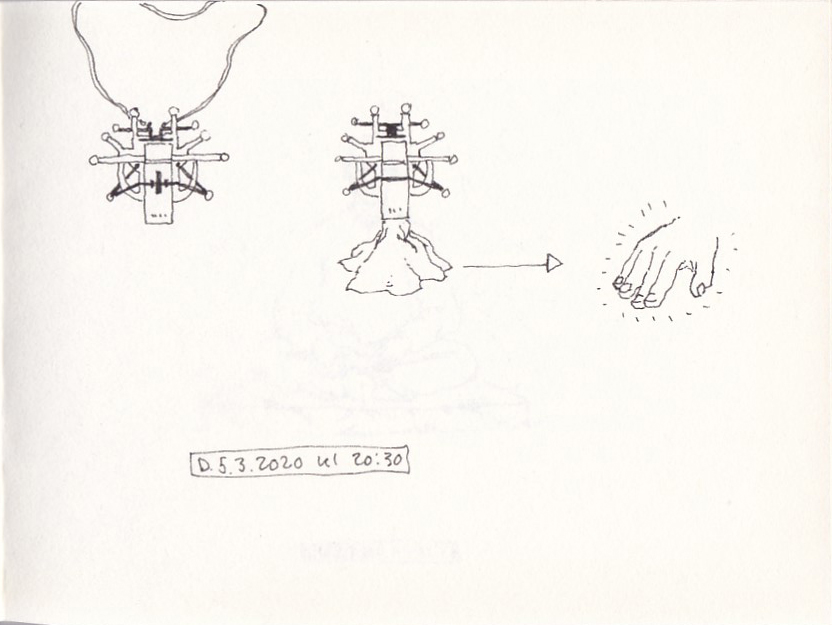 D. 5.3.2020 kl 20:30